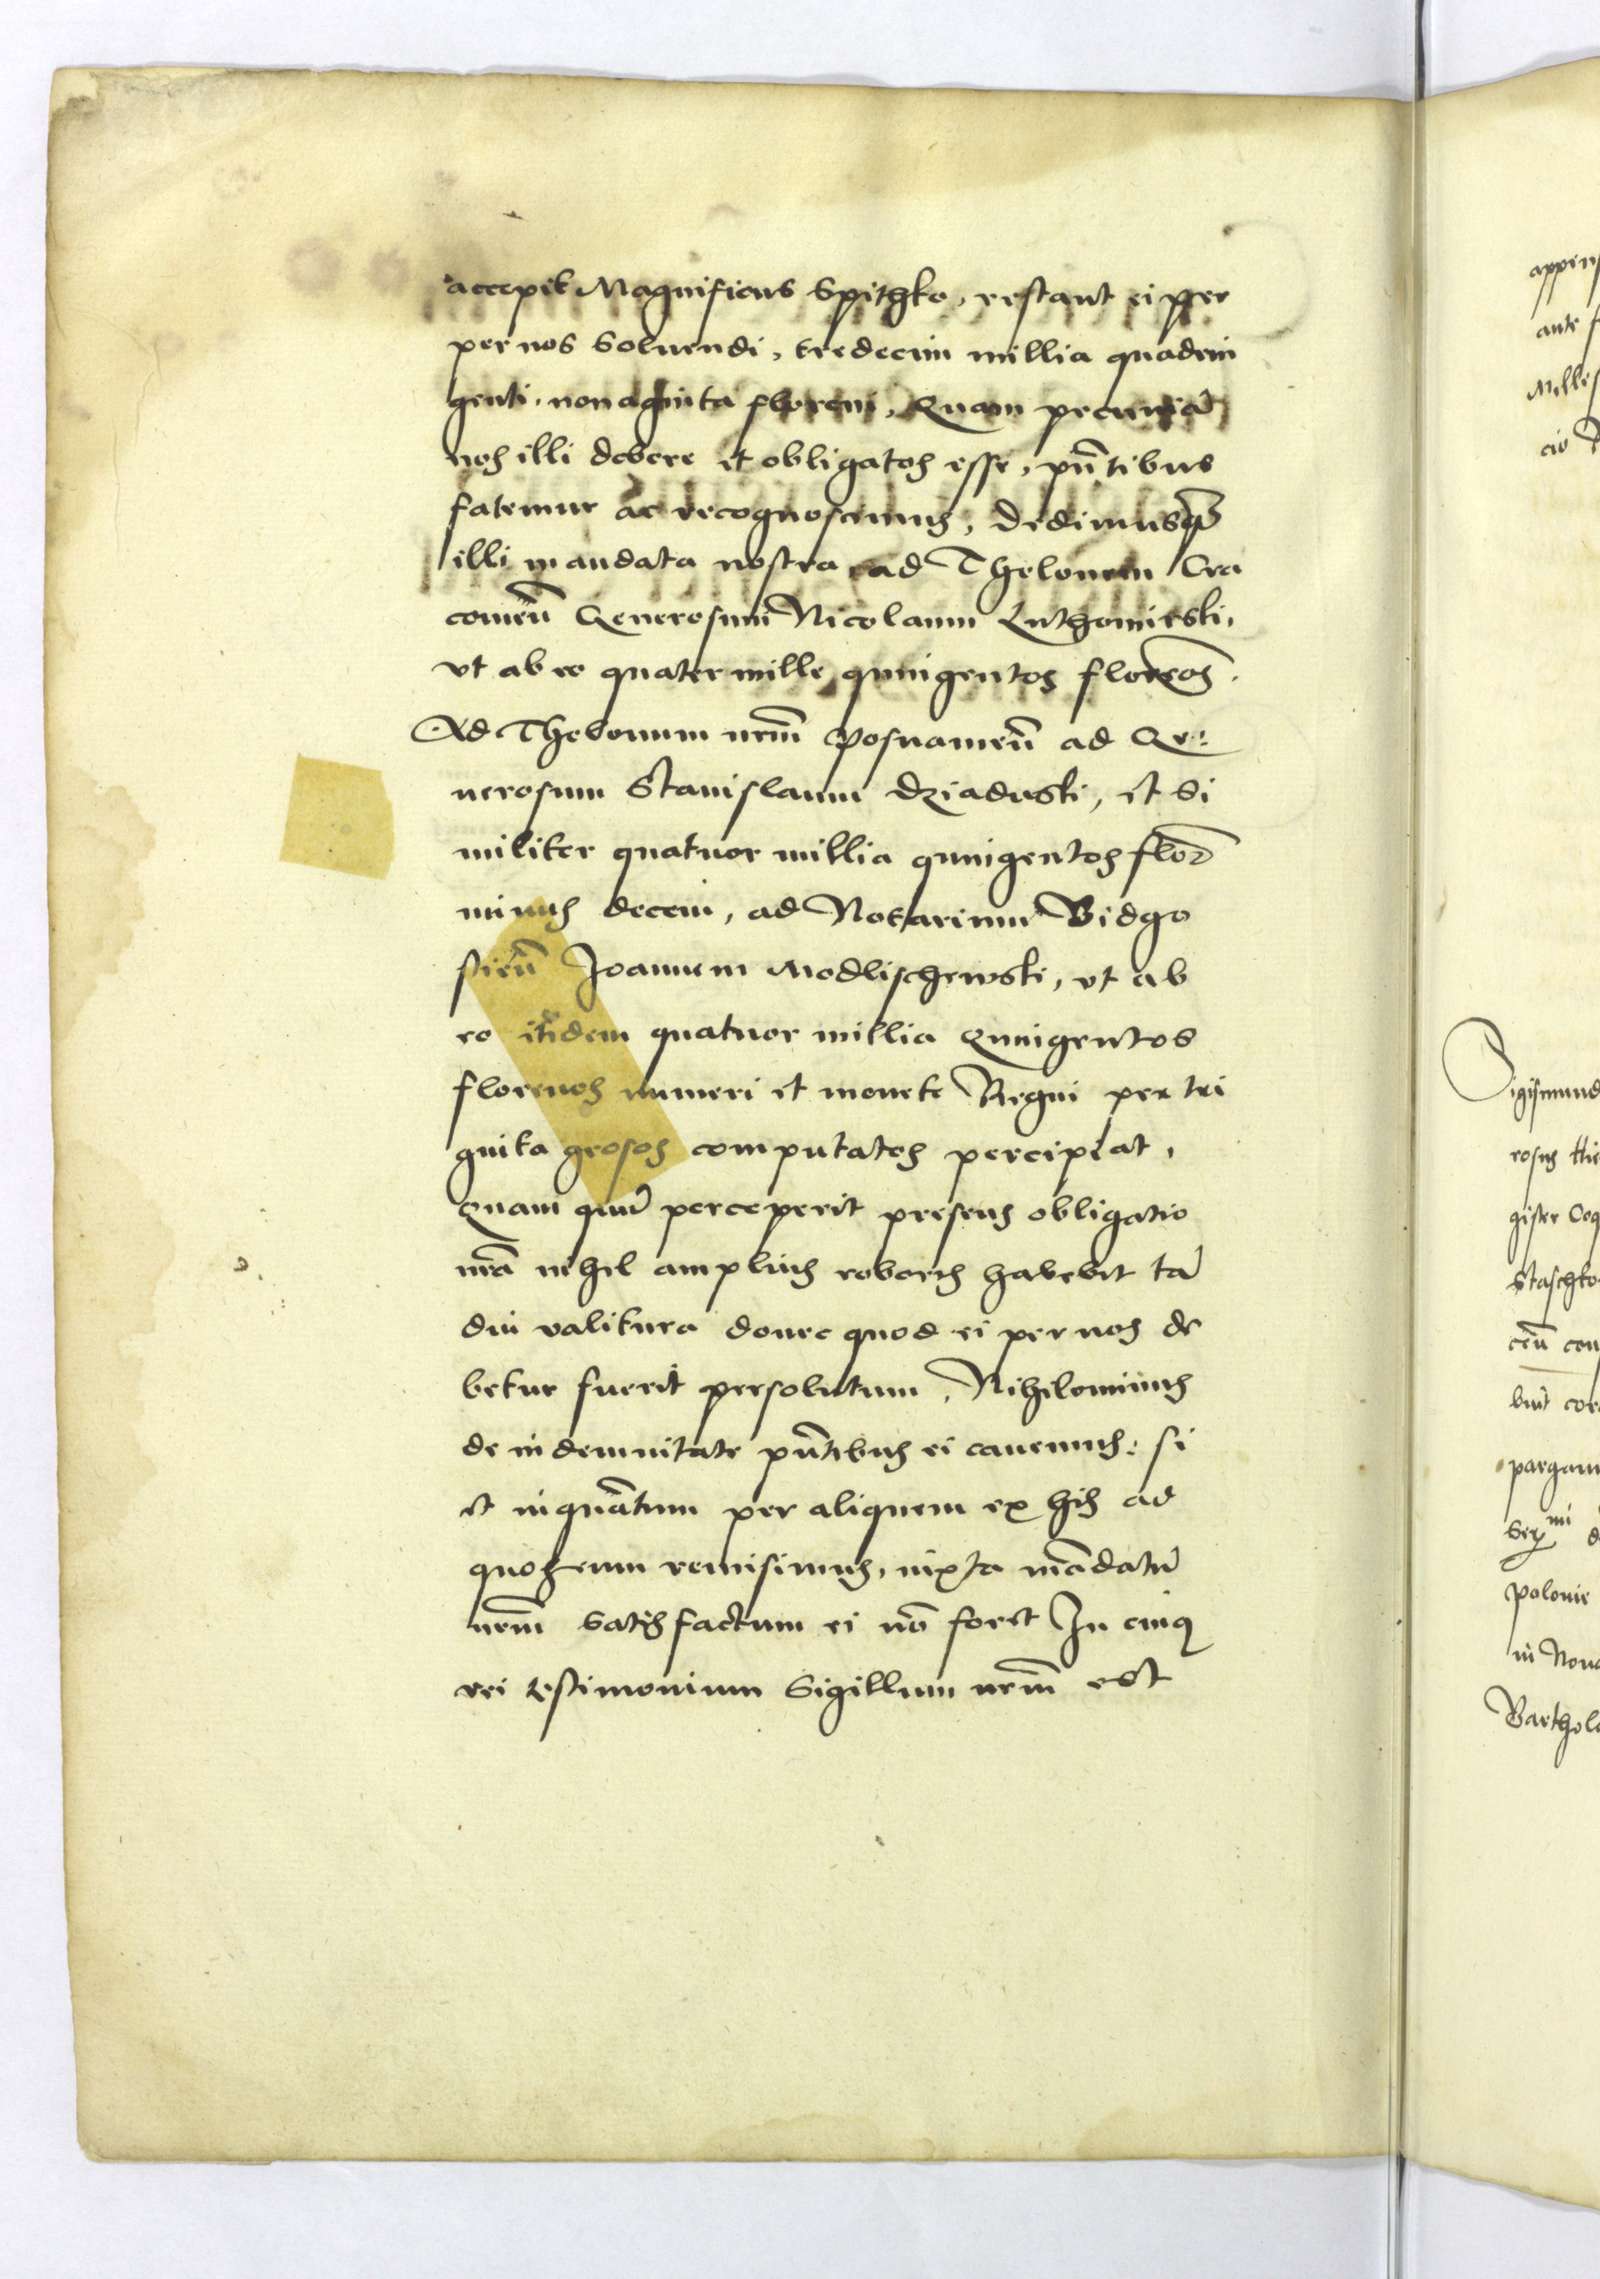 accepit Magnificus Spithko, restant ei per
per nos soluendi, tredecim millia quadrin
genti nonaginta floreni, Quam pecuniā
nos illi debere et obligatos esse, pn̄tibus
fatemur ac recognoscimus, Dedimusq̄
illi mandata nostra ad Theloneum Cra
couieñ Generosum Nicolaum Luthomirski,
vt ab eo quater mille quingentos florenos.
Ad Theloneum nr̄m Posnanieñ ad Ge:
nerosum Stanislaum Dziaduski, et si
militer quatuor millia quingentos floꝛ̄
minus decem, ad Notarium Bidgo
stieñ Joannem Modlischewski, vt ab
eo itidem quatuor millia Quingentos
florenos numeri et monete Regni per tri
ginta grosos computatos percipiat,
Quam quū perceperit presens obligatio
nr̄a nihil amplius roboris habebit tā
diu valitura donec quod ei per nos de
betur fuerit persolutum, Nihilominus
de indemnitate pn̄tibus ei cauemus: si
et inquātum per aliquem ex his ad
quos eum remisimus, iuxta mādatū
nr̄m satisfactum ei nō foret In cuiꝯ
rei testimonium Sigillum nr̄m est
appens
ante f
Milles
cio
Sigismund
rosus
gister Coq
Staschko
ceñ con
buit cor
pargam
Polonie
in Noua
Barthol